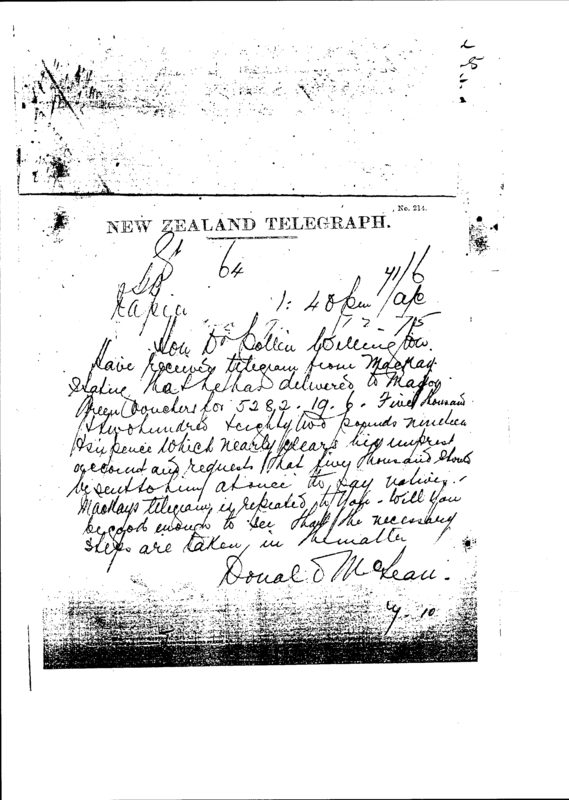 No. 214.
NEW ZEALAND TELEGRAPH.
64
41/6
Napier 1:40 pm
75
Hon Dr Pollen Wellington.
Have received telegram from Mackay
stating that he has delivered to Major
Green Vouchers for 5282.19.6. Five thousand
& two hundred & eighty two pounds nineteen
& sixpence which nearly clears his imprest
account and requests that five thousand should
be sent to him at once to pay natives.
Mackays telegram is repeated to you. Will you
be good enough to see that the necessary
steps are taken in the matter
Donald McLean.
10